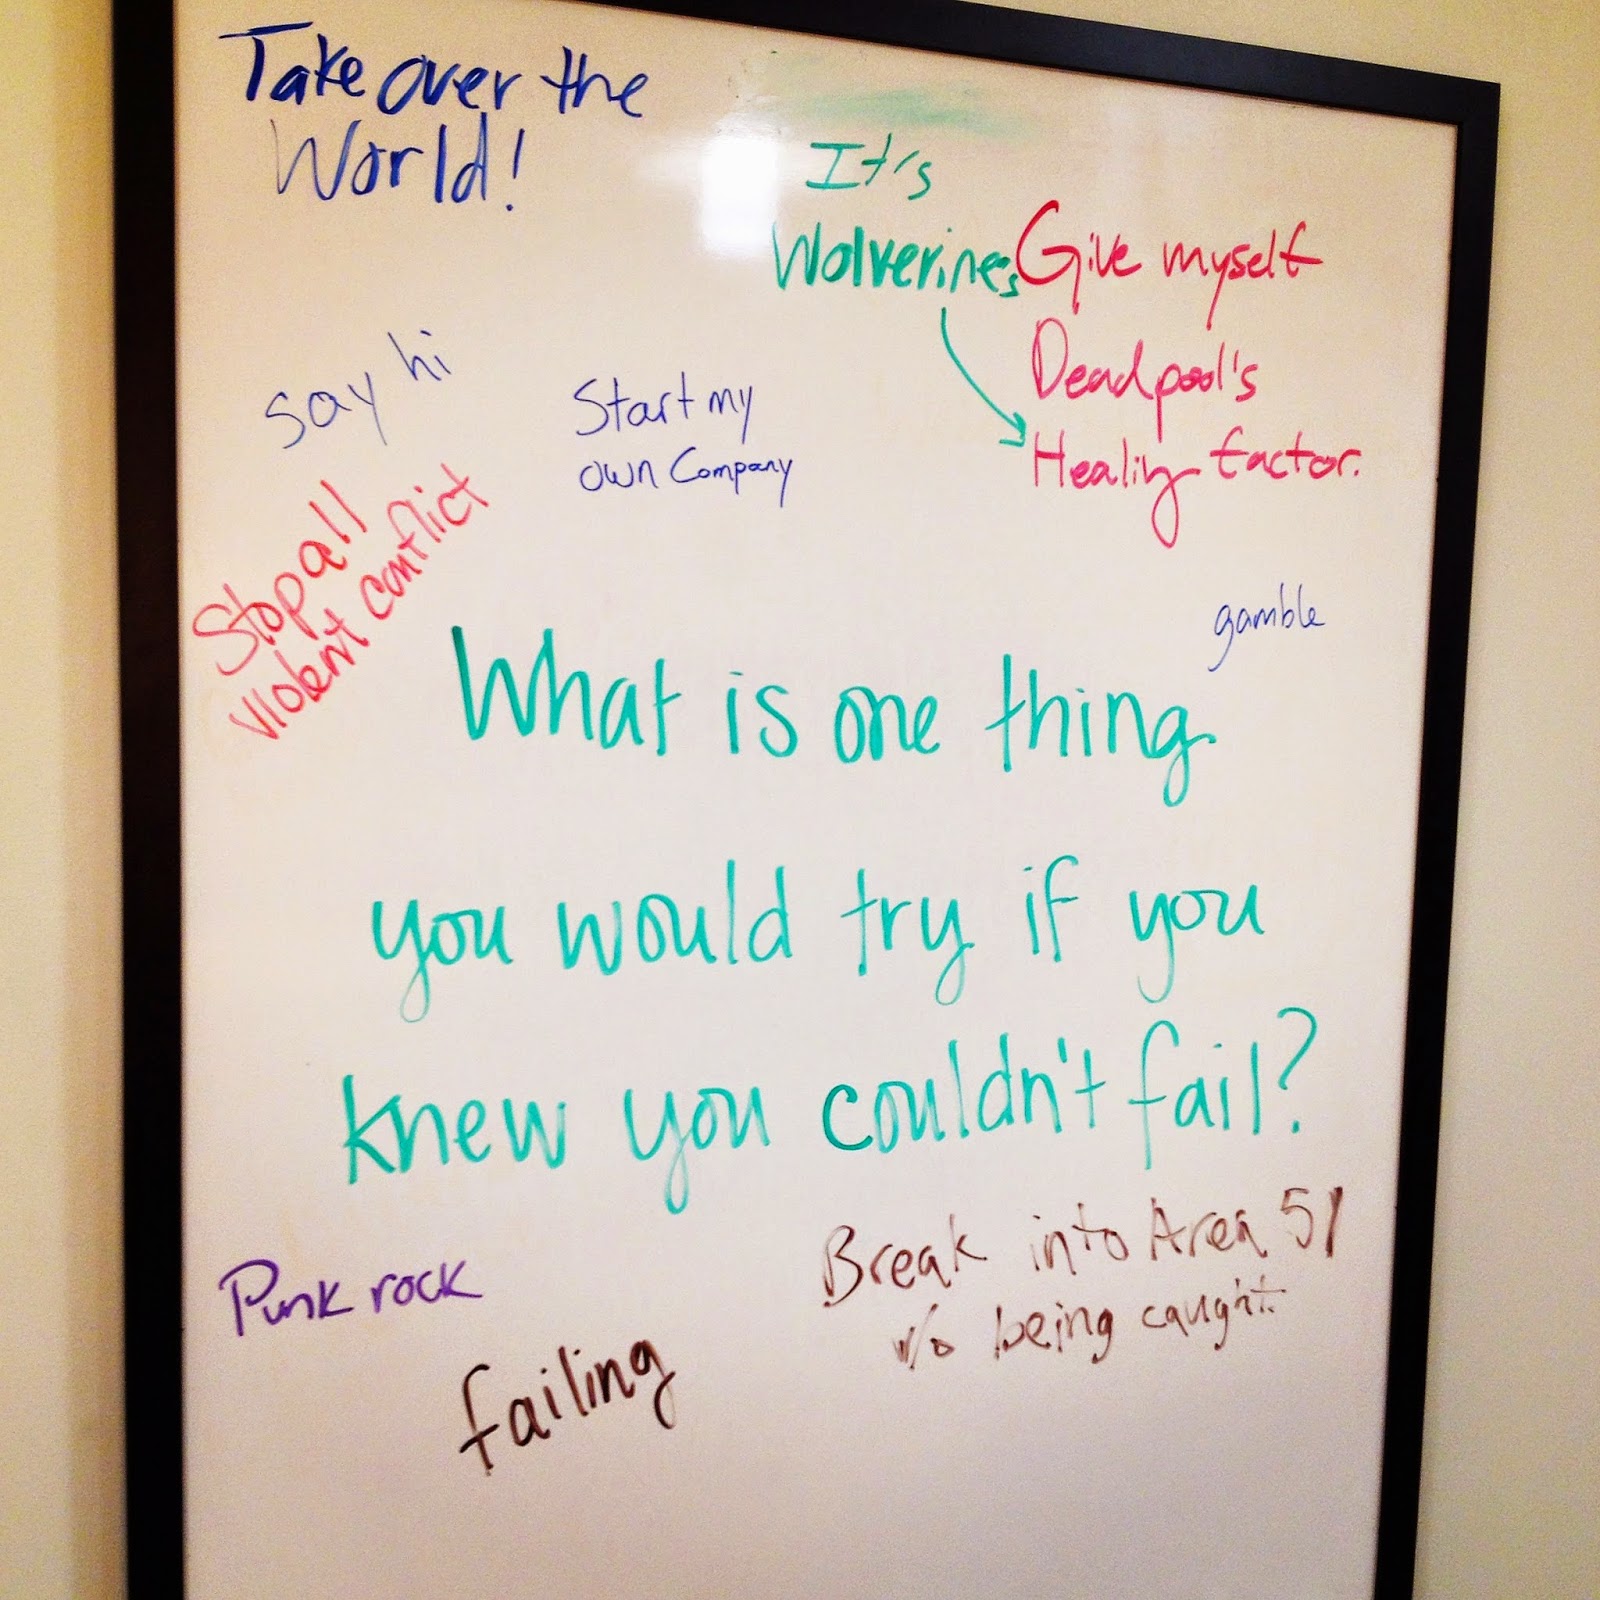 Take over the
World!
It's
Wolverines
Give myself
Deadpool's
Healing factor.
say hi
Start my
own Company
Stop all
violent conflict
gamble
What is one thing
you would try if you
knew you couldn't fail?
Punk rock
failing
Break into Area 51
w/o being caught.